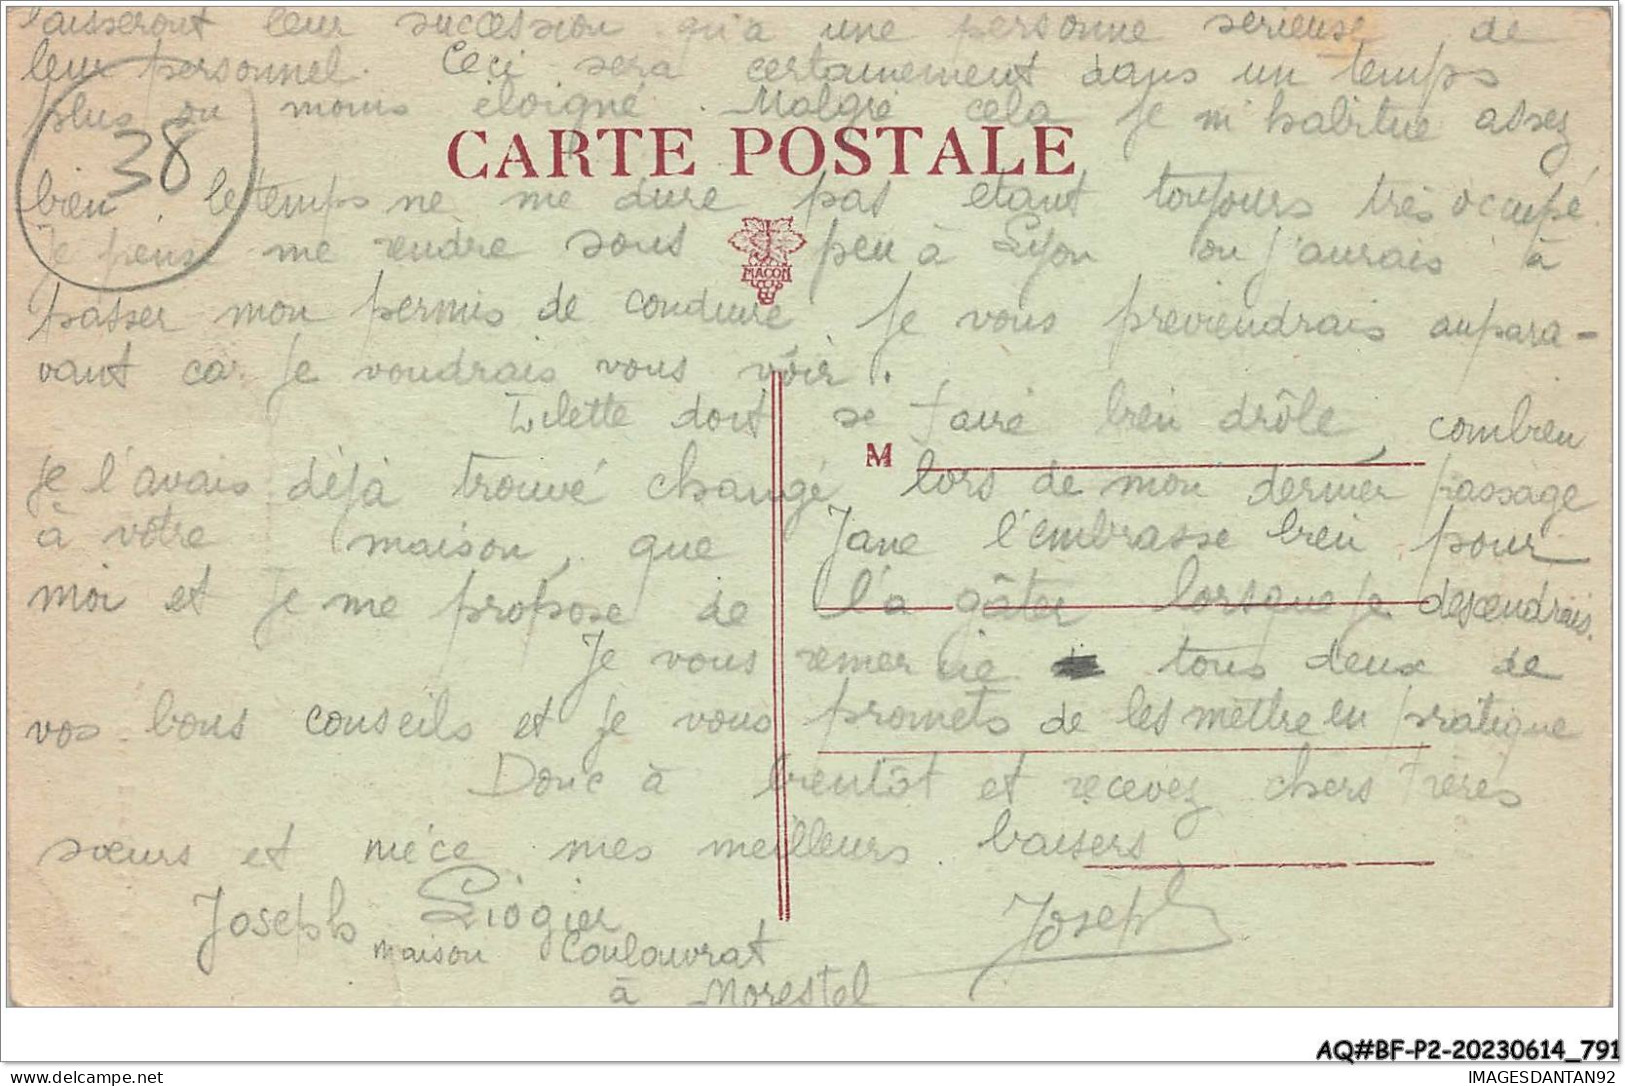 laisseront leur succession qu'a une personne serieuse de
leur personnel. Ceci sera certainement dans un temps
plus ou moins éloigné. Malgré cela je m'habitue assez
CARTE POSTALE
38
bien, le temps ne me dure pas etant toujours très occupé.
Je pense me rendre sous peu à Lyon ou j'aurais à
MACON
passer mon permis de conduire. Je vous previendrais aupara-
vant car je voudrais vous voir.
doit se faire bien drôle, combien
M
je l'avais déjà trouvé changé lors de mon dernier passage
à vôtre maison, que Jane l'embrasse bien pour
moi et je me propose de l'a gâter lorsque je descendrais.
Je vous remercie tous deux de
vos bons conseils et je vous promets de les mettre en pratique
Donc à bientôt et recevez chers frères
sœurs et niéce mes meilleurs baisers
Joseph Liogier Joseph
maison Coulouvrat
à Morestel
AQ#BF-P2-20230614_791
IMAGESDANTAN92